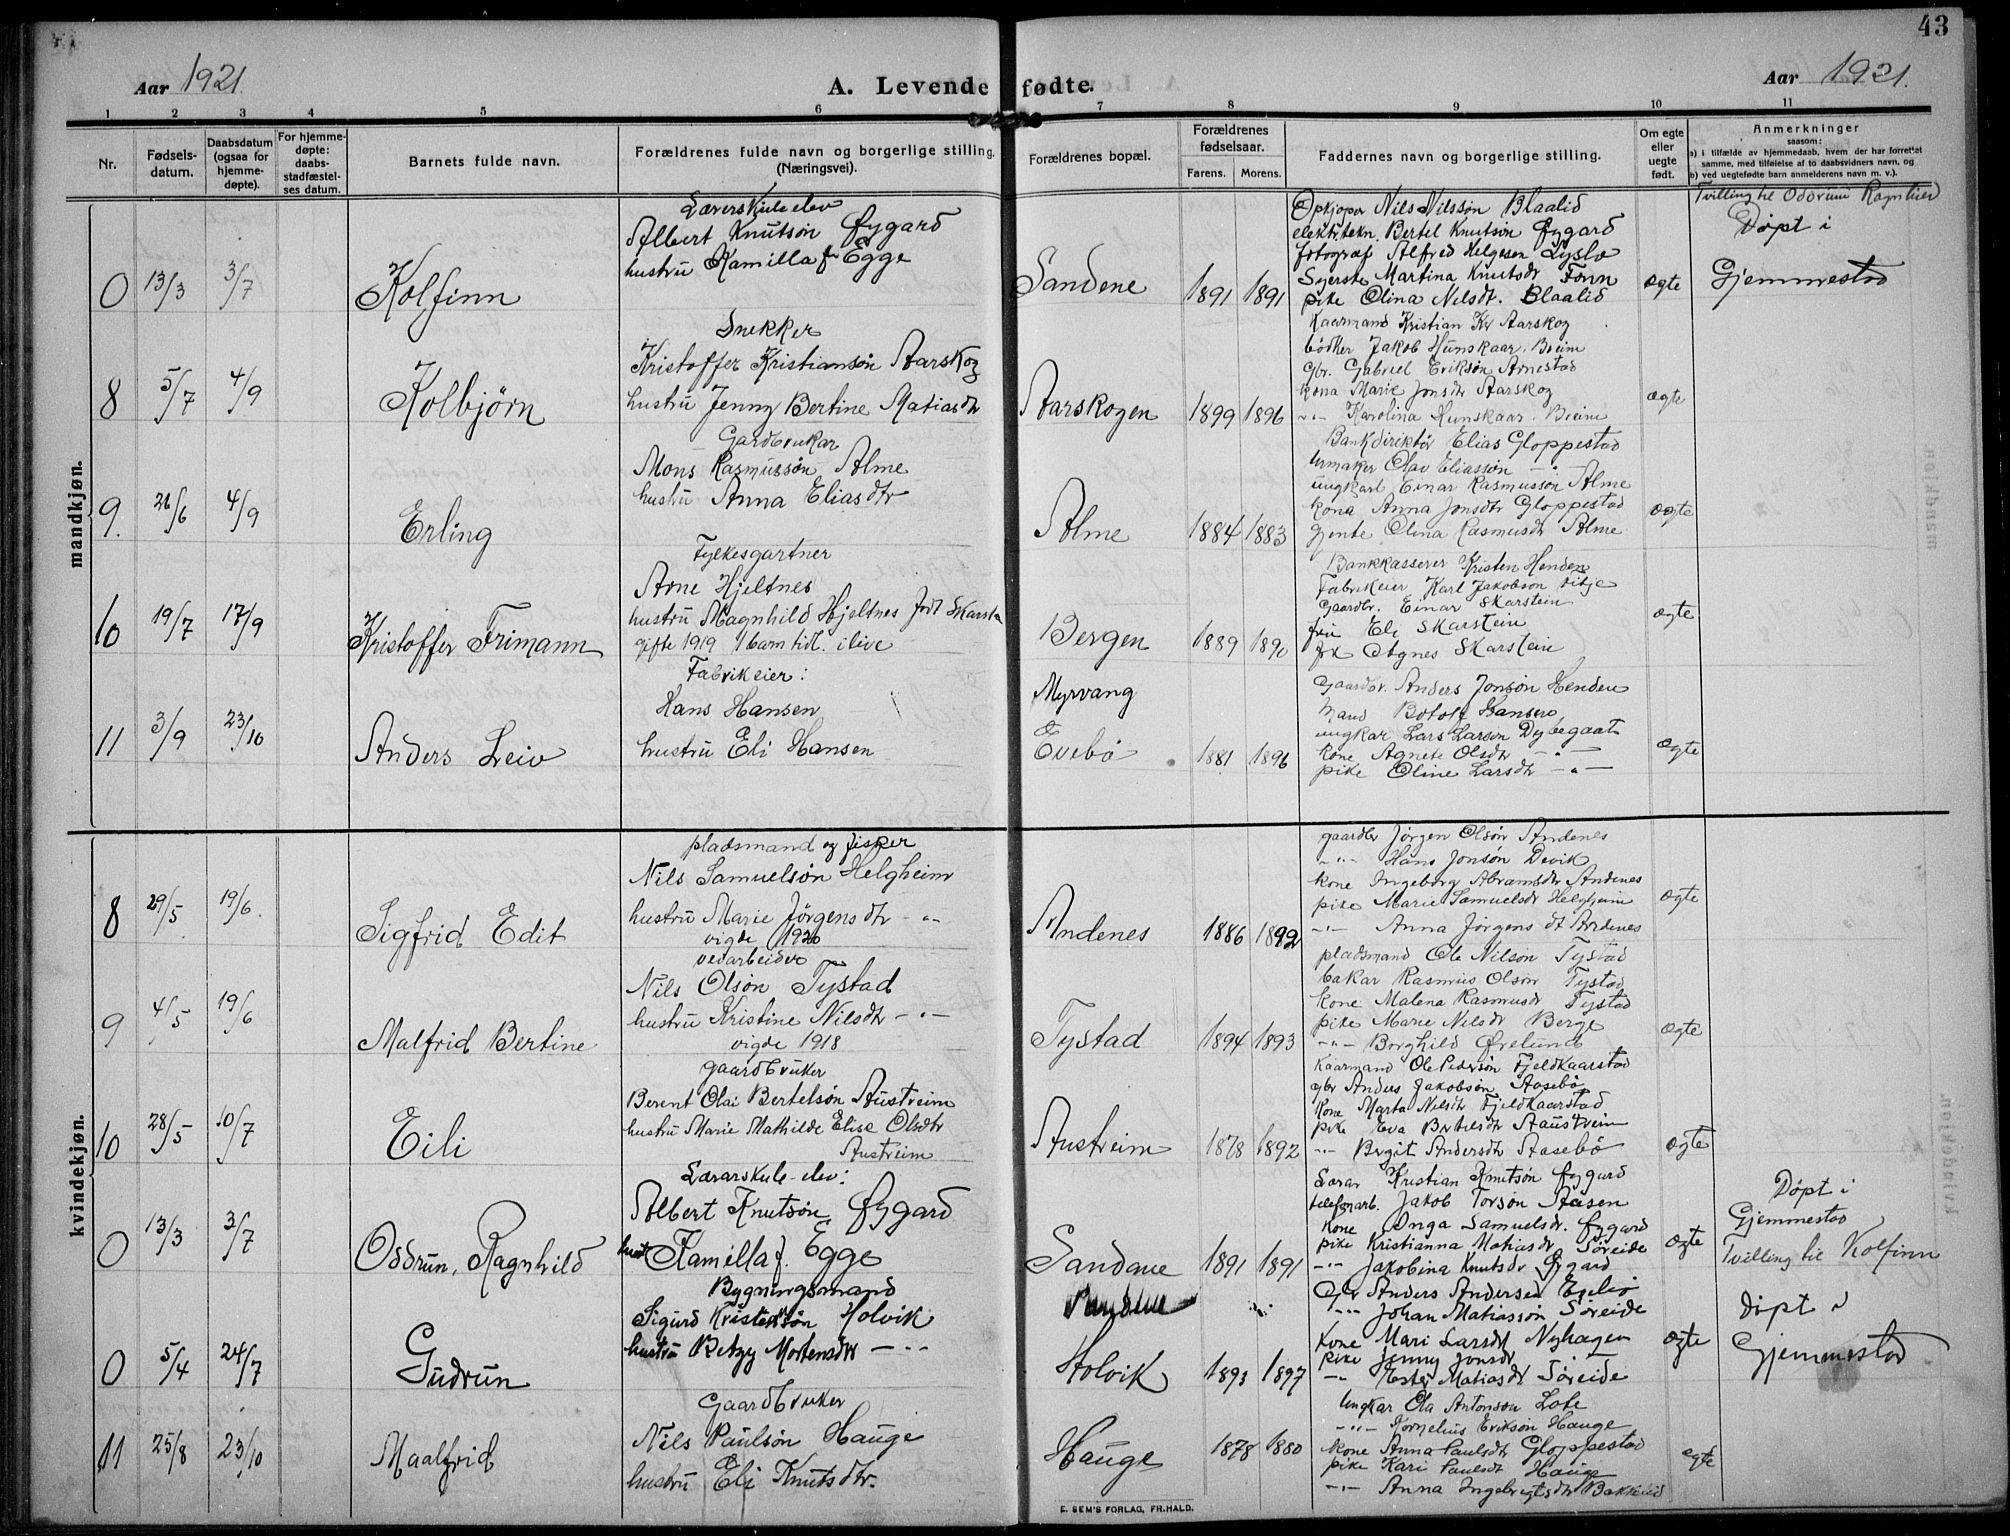 43
Aar 1921.
A. Levende fødte.
Aar 1921.
1 2 3 4 5 6 7 8 9 10 11
Nr.
Fødsels-
datum.
Daabsdatum
(ogsaa for
hjemme-
døpte).
For hjemme-
døpte:
daabs-
stadfæstel-
ses datum.
Barnets fulde navn.
Forældrenes fulde navn og borgerlige stilling.
(Næringsvei).
Forældrenes bopæl.
Forældrenes
fødselsaar.
Farens. Morens.
Faddernes navn og borgerlige stilling.
Om egte
eller
uegte
født.
Anmerkninger
saasom:
a) i tilfælde av hjemmedaab, hvem der har forrettet
samme, med tilføielse af to daabsvidners navn, og
b) ved uegtefødte barn anmelderens navn m. v.).
mandkjøn.
0 13/3 3/7 Kolfinn
Lærerskule elev
Albert Knutsøn Øygard
hustru Kamilla f. Egge
Sandene 1891 1891
Opkjøper Nils Nilssøn Blaalid
elektr.tekn. Bertel Knutsøn Øygard
fotograf Alfred Helgesen Lyslo
Syerske Martina Knutsdr Tonn
pike Olina Nilsdt. Blaalid
ægte
Tvilling til Oddrun Ragnhild
Døpt i
Gjemmestad
8 5/7 4/9 Kolbjørn
Snekker
Kristoffer Kristiansøn Aarskog
hustru Jenny Bertine Matiasdtr
Aarskogen 1899 1896
Kaarmand Kristian Kr Aarskog
bødker Jakob Hunskaar. Breim
Gbr. Gabriel Eriksøn Arnestad
kona Marie Jonsdtr Aarskog
-"- Karolina Hunskaar. Breim
ægte
9. 26/6 4/9 Erling
Gardbrukar
Mons Rasmussøn Alme
hustru Anna Eliasdtr
Alme 1884 1883
Bankdirektør Elias Gloppestad
Urmaker Olav Eliassøn -"-
ungkarl Einar Rasmussøn Alme
kona Anna Jonsdtr Gloppestad
gjente Olina Rasmusdtr Alme
ægte
10 19/7 17/9 Kristoffer Frimann
Fylkesgartner
Arne Hjeltnes
hustru Magnhild Hjeltnes født Skarste
gifte 1919 1 barn tidl. ilive
Bergen 1889 1890
Bankkasserer Kristen Henden
Fabrikeier Karl Jakobson
Gaardbr. Einar Skarstein
fru Eli Skarstein
frk Agnes Skarstein
ægte
11 3/9 23/10 Anders Leiv
Fabrikeier:
Hans Hansen
hustru Eli Hansen
Myrvang
Evebø 1881 1896
Gaardbr. Anders Jonsøn Henden
Mand Botolf Hansen
ungkar Lars Larsen Dybegaat
kone Agnete Olsdtr -"-
pike Oline Larsdtr -"-
ægte
kvindekjøn.
8 29/5 19/6. Sigfrid Edit
pladsmand og fisker
Nils Samuelsøn Helgheim
hustru Marie Jørgensdtr -"-
vigde 1920
Andenes 1886 1892
gaardbr Jørgen Olsøn Andenes
-"- Hans Jonsøn Devik
kone Ingeborg Abramsdtr Andenes
pike Marie Samuelsdr Helgheim
-"- Anna Jørgensdt Andenes
ægte
9 4/5 19/6 Malfrid Bertine
veiarbeider
Nils Olsøn Tystad
hustru Kristine Nilsdtr -"-
vigde 1918
Tystad 1894 1893
pladsmand Ole Nilsøn Tystad
bakar Rasmus Olsøn Tystad
kone Malena Rasmusdr Tystad
pike Marie Nilsdr Berge
-"- Borghild Ørelund
ægte
10 28/5 10/7 Eili
gaardbruker
Berent Olai Bertelsøn Austreim
hustru Marie Mathilde Elise Olsdtr
Austreim
Austreim 1878 1892
Kaarmand Ole Pedersøn Fjeldkaarstad
gbr Anders Jakobsøn Aasebø
kone Marta Nilsdtr Fjeldkaarstad
pike Eva Bertelsdtr Austreim
-"- Bergit Andersdtr Aasebø
ægte
0 13/3 3/7 Oddrun, Ragnhild
Lærarskule-elev:
Albert Knutsøn Øygard
hust Kamilla f. Egge
Sandane 1891 1891
Lærar Kristian Knutsøn Øygard
telefonarb. Jakob Torsøn Aasen
kone Inga Samuelsdr. Øygard
pike Kristianna Matiasdr Søreide
-"- Jakobina Knutsdr Øygard
ægte
Døpt i
Gjemmestad
Tvilling til Kolfinn
0 5/4 24/7 Gudrun
Bygningsmand
Sigurd Kristensøn Holvik
hustru Betzy Mortensdtr -"-
Holvik 1893 1897
Gbr Anders Andersen Egelid
-"- Johan Matiassøn Søreide
kone Mari Larsdt Nyhagen
pike Jenny Jonsdr
-"- Ester Matiasdt Søreide
ægte
Døpt i
Gjemmestad
11 25/8 23/10 Maalfrid
Gaardbruker
Nils Paulsøn Hauge
hustru Eli Knutsdtr.
Hauge 1878 1880
Ungkar Ola Antonson Lote
-"- Kornelius Eriksøn Hauge
kone Anna Paulsdt Gloppestad
pike Kari Paulsdt Hauge
-"- Anna Ingebrigtsdtr Bakkelid
egte
E. SEM'S FORLAG, FR.HALD.